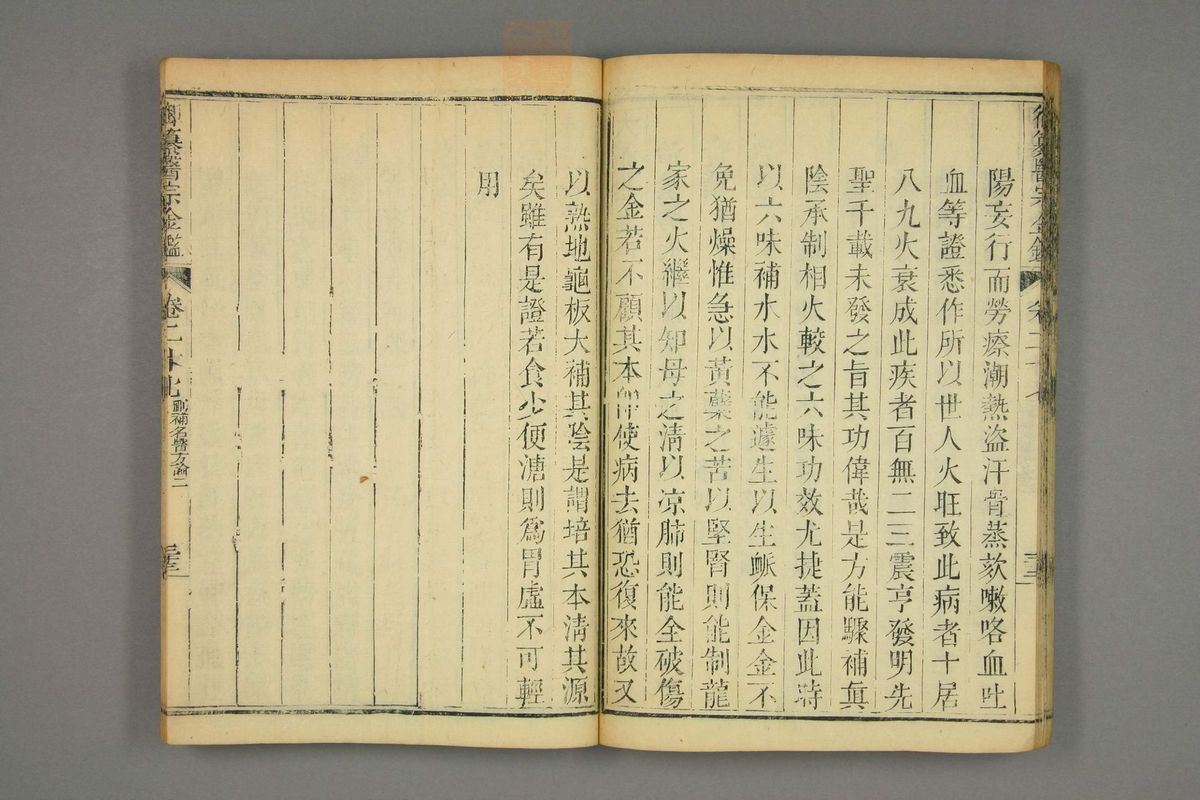 御纂醫宗金鑑 卷二十七
陽妄行而勞瘵潮熱盜汗骨蒸欬嗽咯血吐
血等證悉作所以世人火旺致此病者十居
八九火衰成此疾者百無二三震亨發明先
聖千載未發之旨其功偉哉是方能驟補眞
陰承制相火較之六味功效尤捷蓋因此時
以六味補水水不能遽生以生脈保金金不
免猶燥惟急以黃蘗之苦以堅腎則能制龍
家之火繼以知母之淸以凉肺則能全破傷
之金若不顧其本卽使病去猶恐復來故又
以熟地龜板大補其陰是謂培其本淸其源
矣雖有是證若食少便溏則爲胃虛不可輕
用
纂醫宗金鑑 卷二十七 刪補名醫方論二 三三